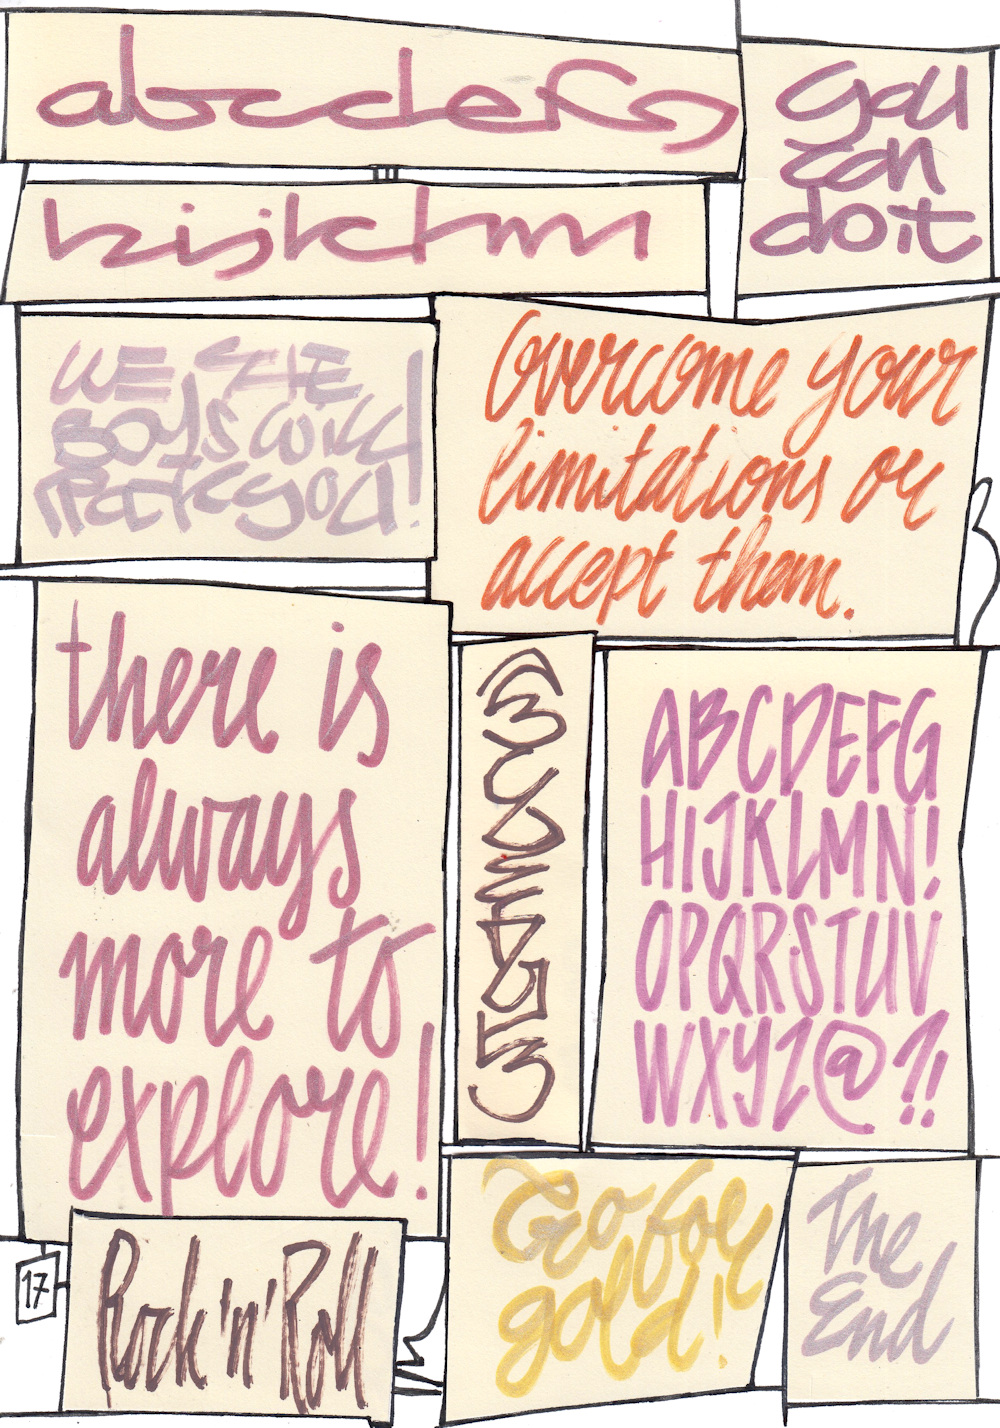 abcdefg
you
can
do it
hijklmn
WE THE
BOYS WILL
you!
Overcome your
limitations or
accept them.
there is
always
more to
explore!
ABCDEFG
HIJKLMN!
OPQRSTUV
WXYZ@?!
17
Rock 'n' Roll
Go for
gold!
The
End